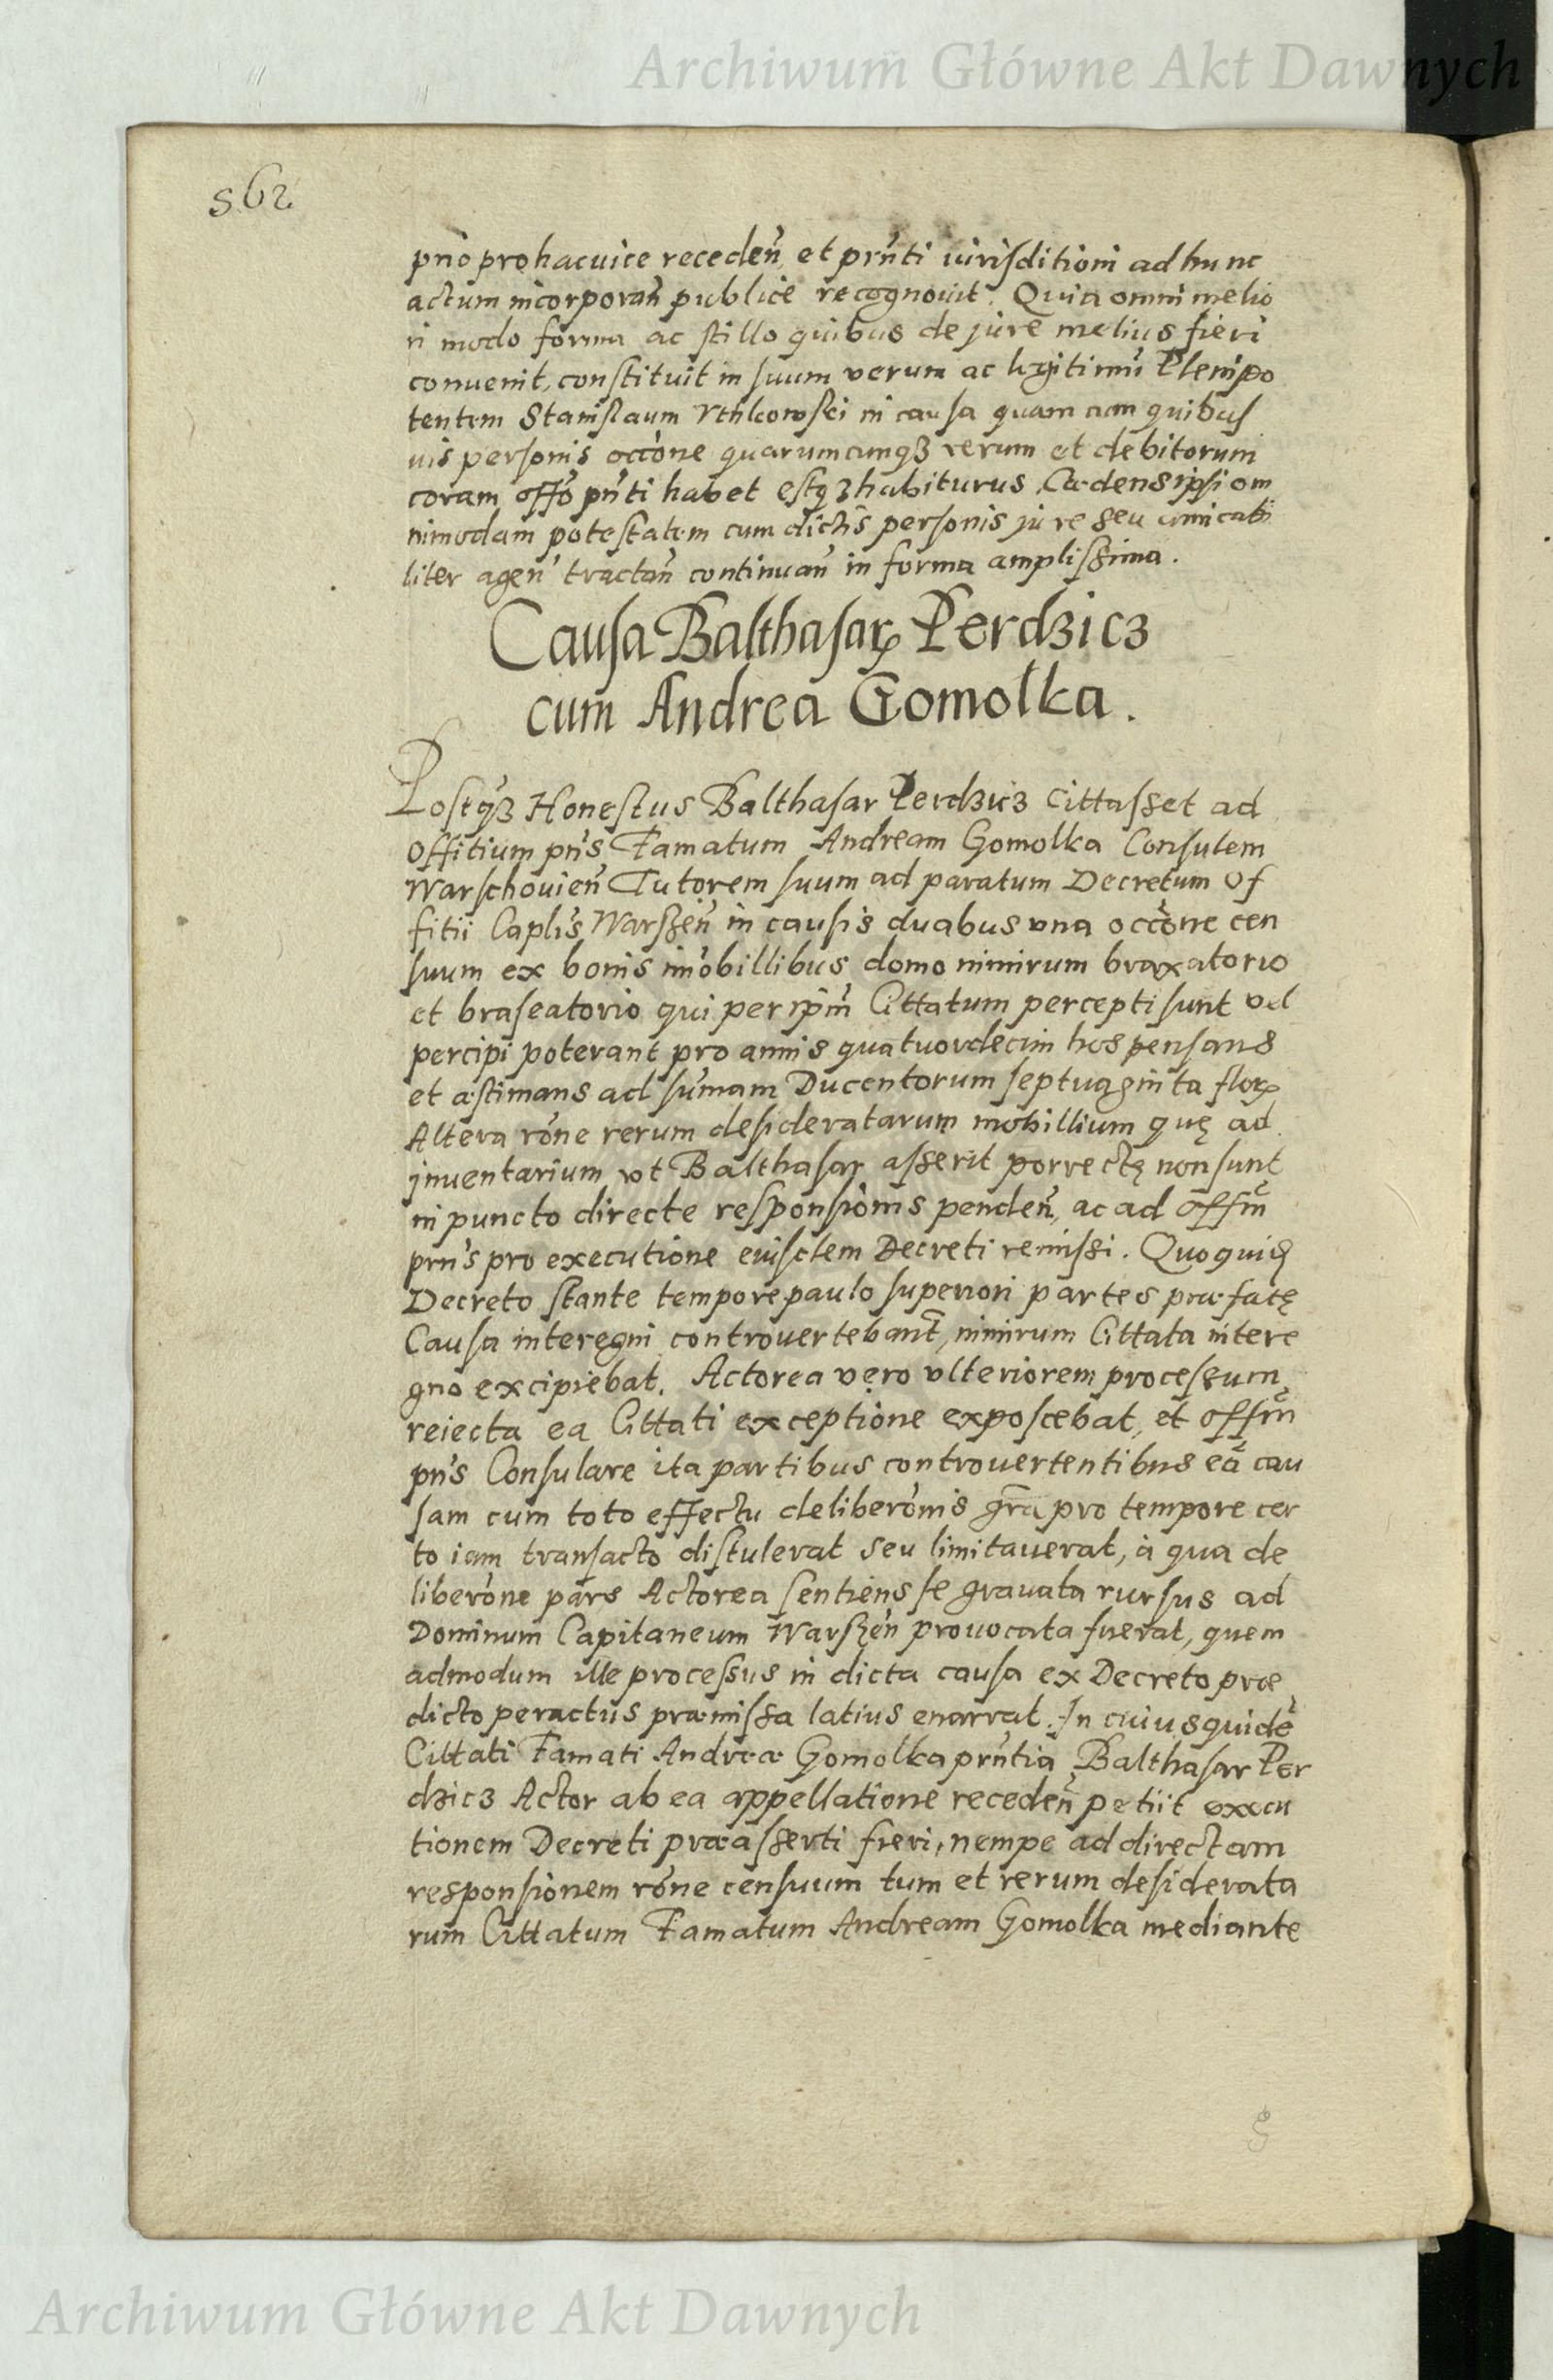 Archiwum Główne Akt Dawnych
562
pño pro hac vice recedeñ et prñti iurisditioni ad hunc
actum incorporañ publice recognouit. Quia omni melio
ri modo forma ac stillo quibus de jure melius fieri
conuenit, constituit in suum verum ac legitimũ Plenipo
tentem Stanislaum in causa quam cum quibus
uis personis occone quarumcunqz rerum et debitorum
coram offo pñti habet estqz habiturus. Cædens ipsi om
nimodam potestatem cum dictis personis jure seu amicabi
liter ageñ tractañ continuañ in forma amplissima.
Causa Balthasarꝝ Perdzicz
cum Andrea Gomolka.
Postqз Honestus Balthasar Perdzicz Cittasset ad
Offitium pñs Famatum Andream Gomolka Consulem
Warschouieñ Tutorem suum ad paratum Decretum Of
fitii Caplis Warszeñ in causis duabus vna occone cen
suum ex bonis imobillibus domo nimirum braxatorio
et braseatorio qui per ipm̃ Cittatum percepti sunt vel
percipi poterant pro annis quatuordecim hos pensans
et æstimans ad sum̃am Ducentorum septuaginta florꝝ
Altera rõne rerum desideratarum mobillium quę ad
jnuentarium vt Balthasar asserit porrectę non sunt
in puncto directe responsionis pendeñ, ac ad offm̃
prñs pro executione eiusdem Decreti remissi. Quoquid
Decreto stante tempore paulo superiori partes præfatę
Causa interegni controuertebant, nimirum Cittata intere
gno excipiebat. Actorea vero vlteriorem processum
reiecta ea Cittati exceptione exposcebat, et offm̃
pñs Consulare ita partibus controuertentibus eã cau
sam cum toto effectu deliberõnis grã pro tempore cer
to iam transacto distulerat seu limitauerat, à qua de
liberõne pars Actorea sentiens se grauata rursus ad
Dominum Capitaneum Warszeñ prouocata fuerat, quem
admodum ille processus in dicta causa ex Decreto præ
dicto peractus præmissa latius enarrat. In cuiusquidẽ
Cittati Famati Andreæ Gomolka prñtia Balthasar Per
dzicz Actor ab ea appellatione recedeñ petiit execu
tionem Decreti præasserti fieri, nempe ad directam
responsionem rõne censuum tum et rerum desiderata
rum Cittatum Famatum Andream Gomolka mediante
Archiwum Główne Akt Dawnych